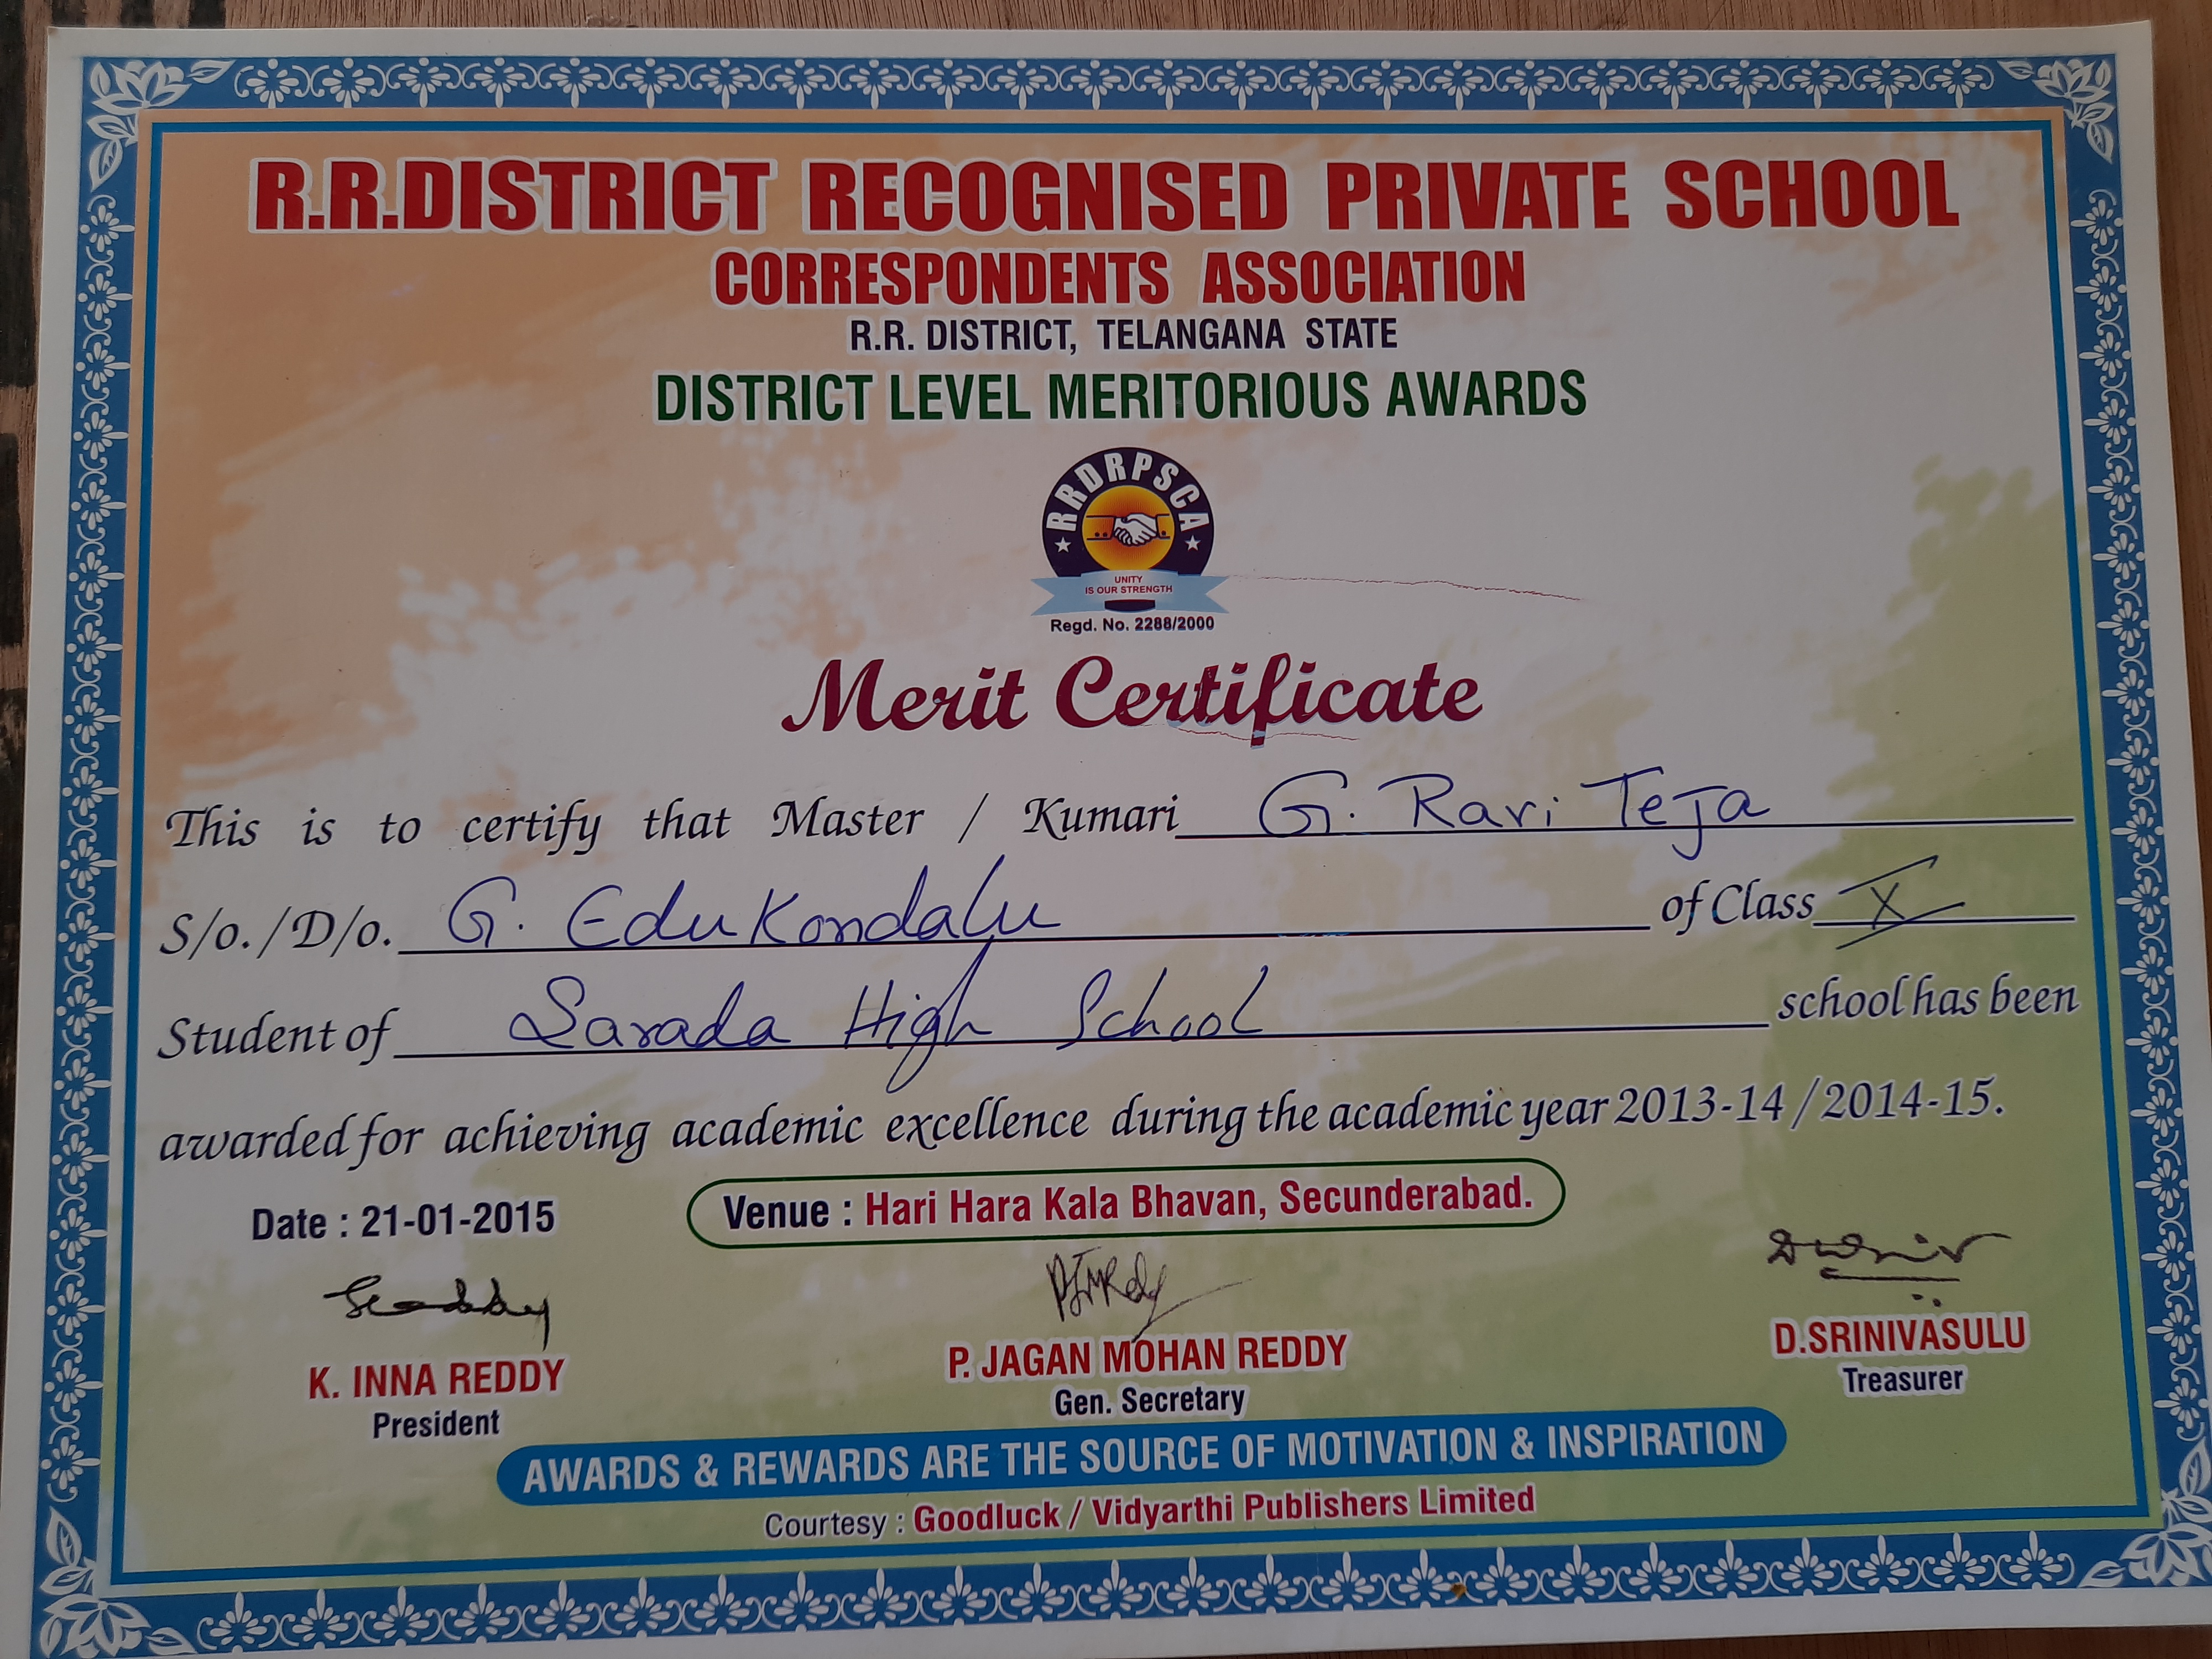 R.R.DISTRICT RECOGNISED PRIVATE SCHOOL
CORRESPONDENTS ASSOCIATION
R.R. DISTRICT, TELANGANA STATE
DISTRICT LEVEL MERITORIOUS AWARDS
RRDRPSCA
UNITY
IS OUR STRENGTH
Regd. No. 2288/2000
Merit Certificate
This is to certify that Master / Kumari G. Ravi Teja
S/o./D/o. G. Edukondalu of Class X
Student of Sarada High School school has been
awarded for achieving academic excellence during the academic year 2013-14 / 2014-15.
Date : 21-01-2015 Venue : Hari Hara Kala Bhavan, Secunderabad.
K. INNA REDDY P. JAGAN MOHAN REDDY D.SRINIVASULU
President Gen. Secretary Treasurer
AWARDS & REWARDS ARE THE SOURCE OF MOTIVATION & INSPIRATION
Courtesy : Goodluck / Vidyarthi Publishers Limited